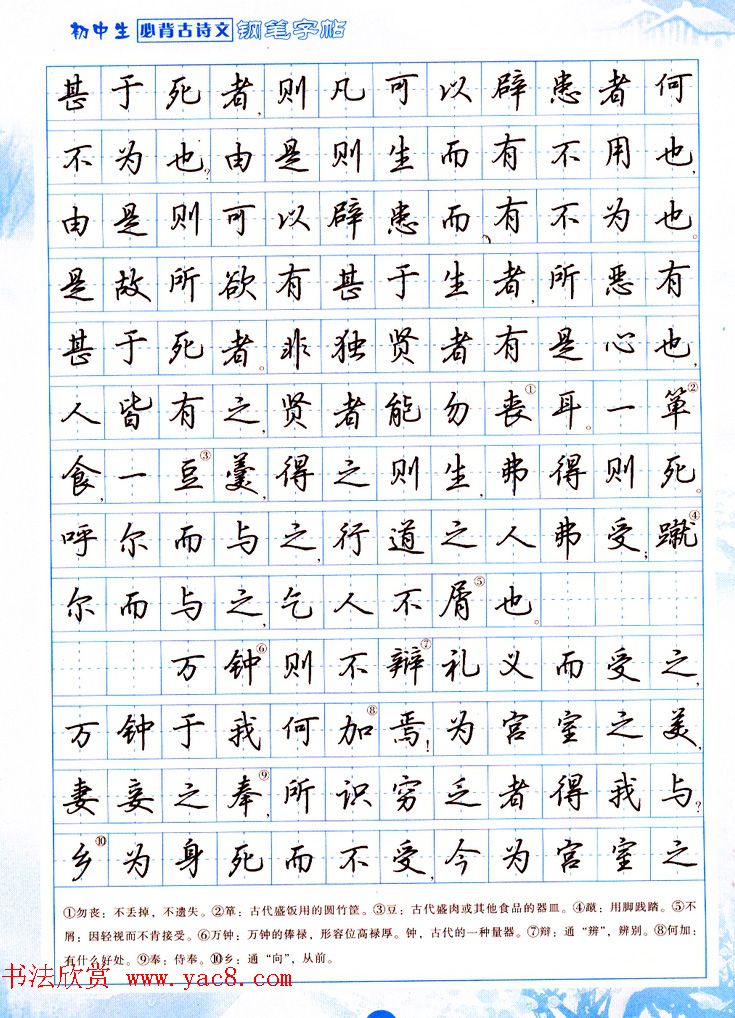 初中生 必背古诗文 钢笔字帖
甚于死者，则凡可以辟患者何
不为也？由是则生而有不用也，
由是则可以辟患而有不为也。
是故所欲有甚于生者，所恶有
甚于死者。非独贤者有是心也，
人皆有之，贤者能勿丧①耳。一箪②
食，一豆③羹，得之则生，弗得则死。
呼尔而与之，行道之人弗受；蹴④
尔而与之，乞人不屑⑤也。
万钟⑥则不辩⑦礼义而受之，
万钟于我何加⑧焉！为宫室之美，
妻妾之奉⑨，所识穷乏者得我与？
乡⑩为身死而不受，今为宫室之
①勿丧：不丢掉，不遗失。②箪：古代盛饭用的圆竹筐。③豆：古代盛肉或其他食品的器皿。④蹴：用脚践踏。⑤不
屑：因轻视而不肯接受。⑥万钟：万钟的俸禄，形容位高禄厚。钟，古代的一种量器。⑦辩：通“辨”，辨别。⑧何加：
有什么好处。⑨奉：侍奉。⑩乡：通“向”，从前。
书法欣赏 www.yac8.com